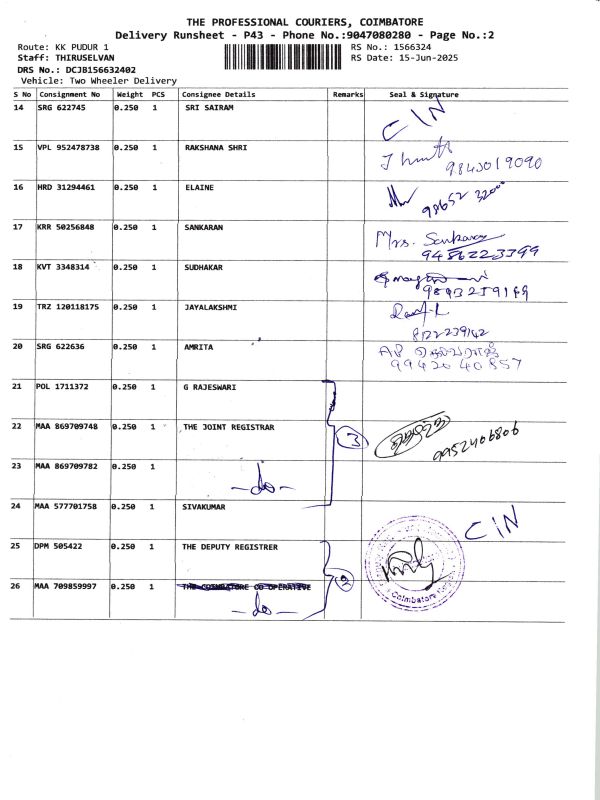 THE PROFESSIONAL COURIERS, COIMBATORE
Delivery Runsheet - P43 - Phone No.:9047080280 - Page No.:2
Route: KK PUDUR 1 RS No.: 1566324
Staff: THIRUSELVAN RS Date: 15-Jun-2025
DRS No.: DCJB156632402
Vehicle: Two Wheeler Delivery
S No Consignment No Weight PCS Consignee Details Remarks Seal & Signature
14 SRG 622745 0.250 1 SRI SAIRAM CIN
15 VPL 952478738 0.250 1 RAKSHANA SHRI
9843019090
16 HRD 31294461 0.250 1 ELAINE
17 KRR 50256848 0.250 1 SANKARAN Mrs. Sankaran
9486223399
18 KVT 3348314 0.250 1 SUDHAKAR
19 TRZ 120118175 0.250 1 JAYALAKSHMI
8122239142
20 SRG 622636 0.250 1 AMRITA
9942640857
21 POL 1711372 0.250 1 G RAJESWARI
22 MAA 869709748 0.250 1 THE JOINT REGISTRAR 3 9952406806
23 MAA 869709782 0.250 1
-do-
24 MAA 577701758 0.250 1 SIVAKUMAR CIN
25 DPM 505422 0.250 1 THE DEPUTY REGISTRER
26 MAA 709859997 0.250 1 THE COIMBATORE CO OPERATIVE 2
-do-
Coimbatore